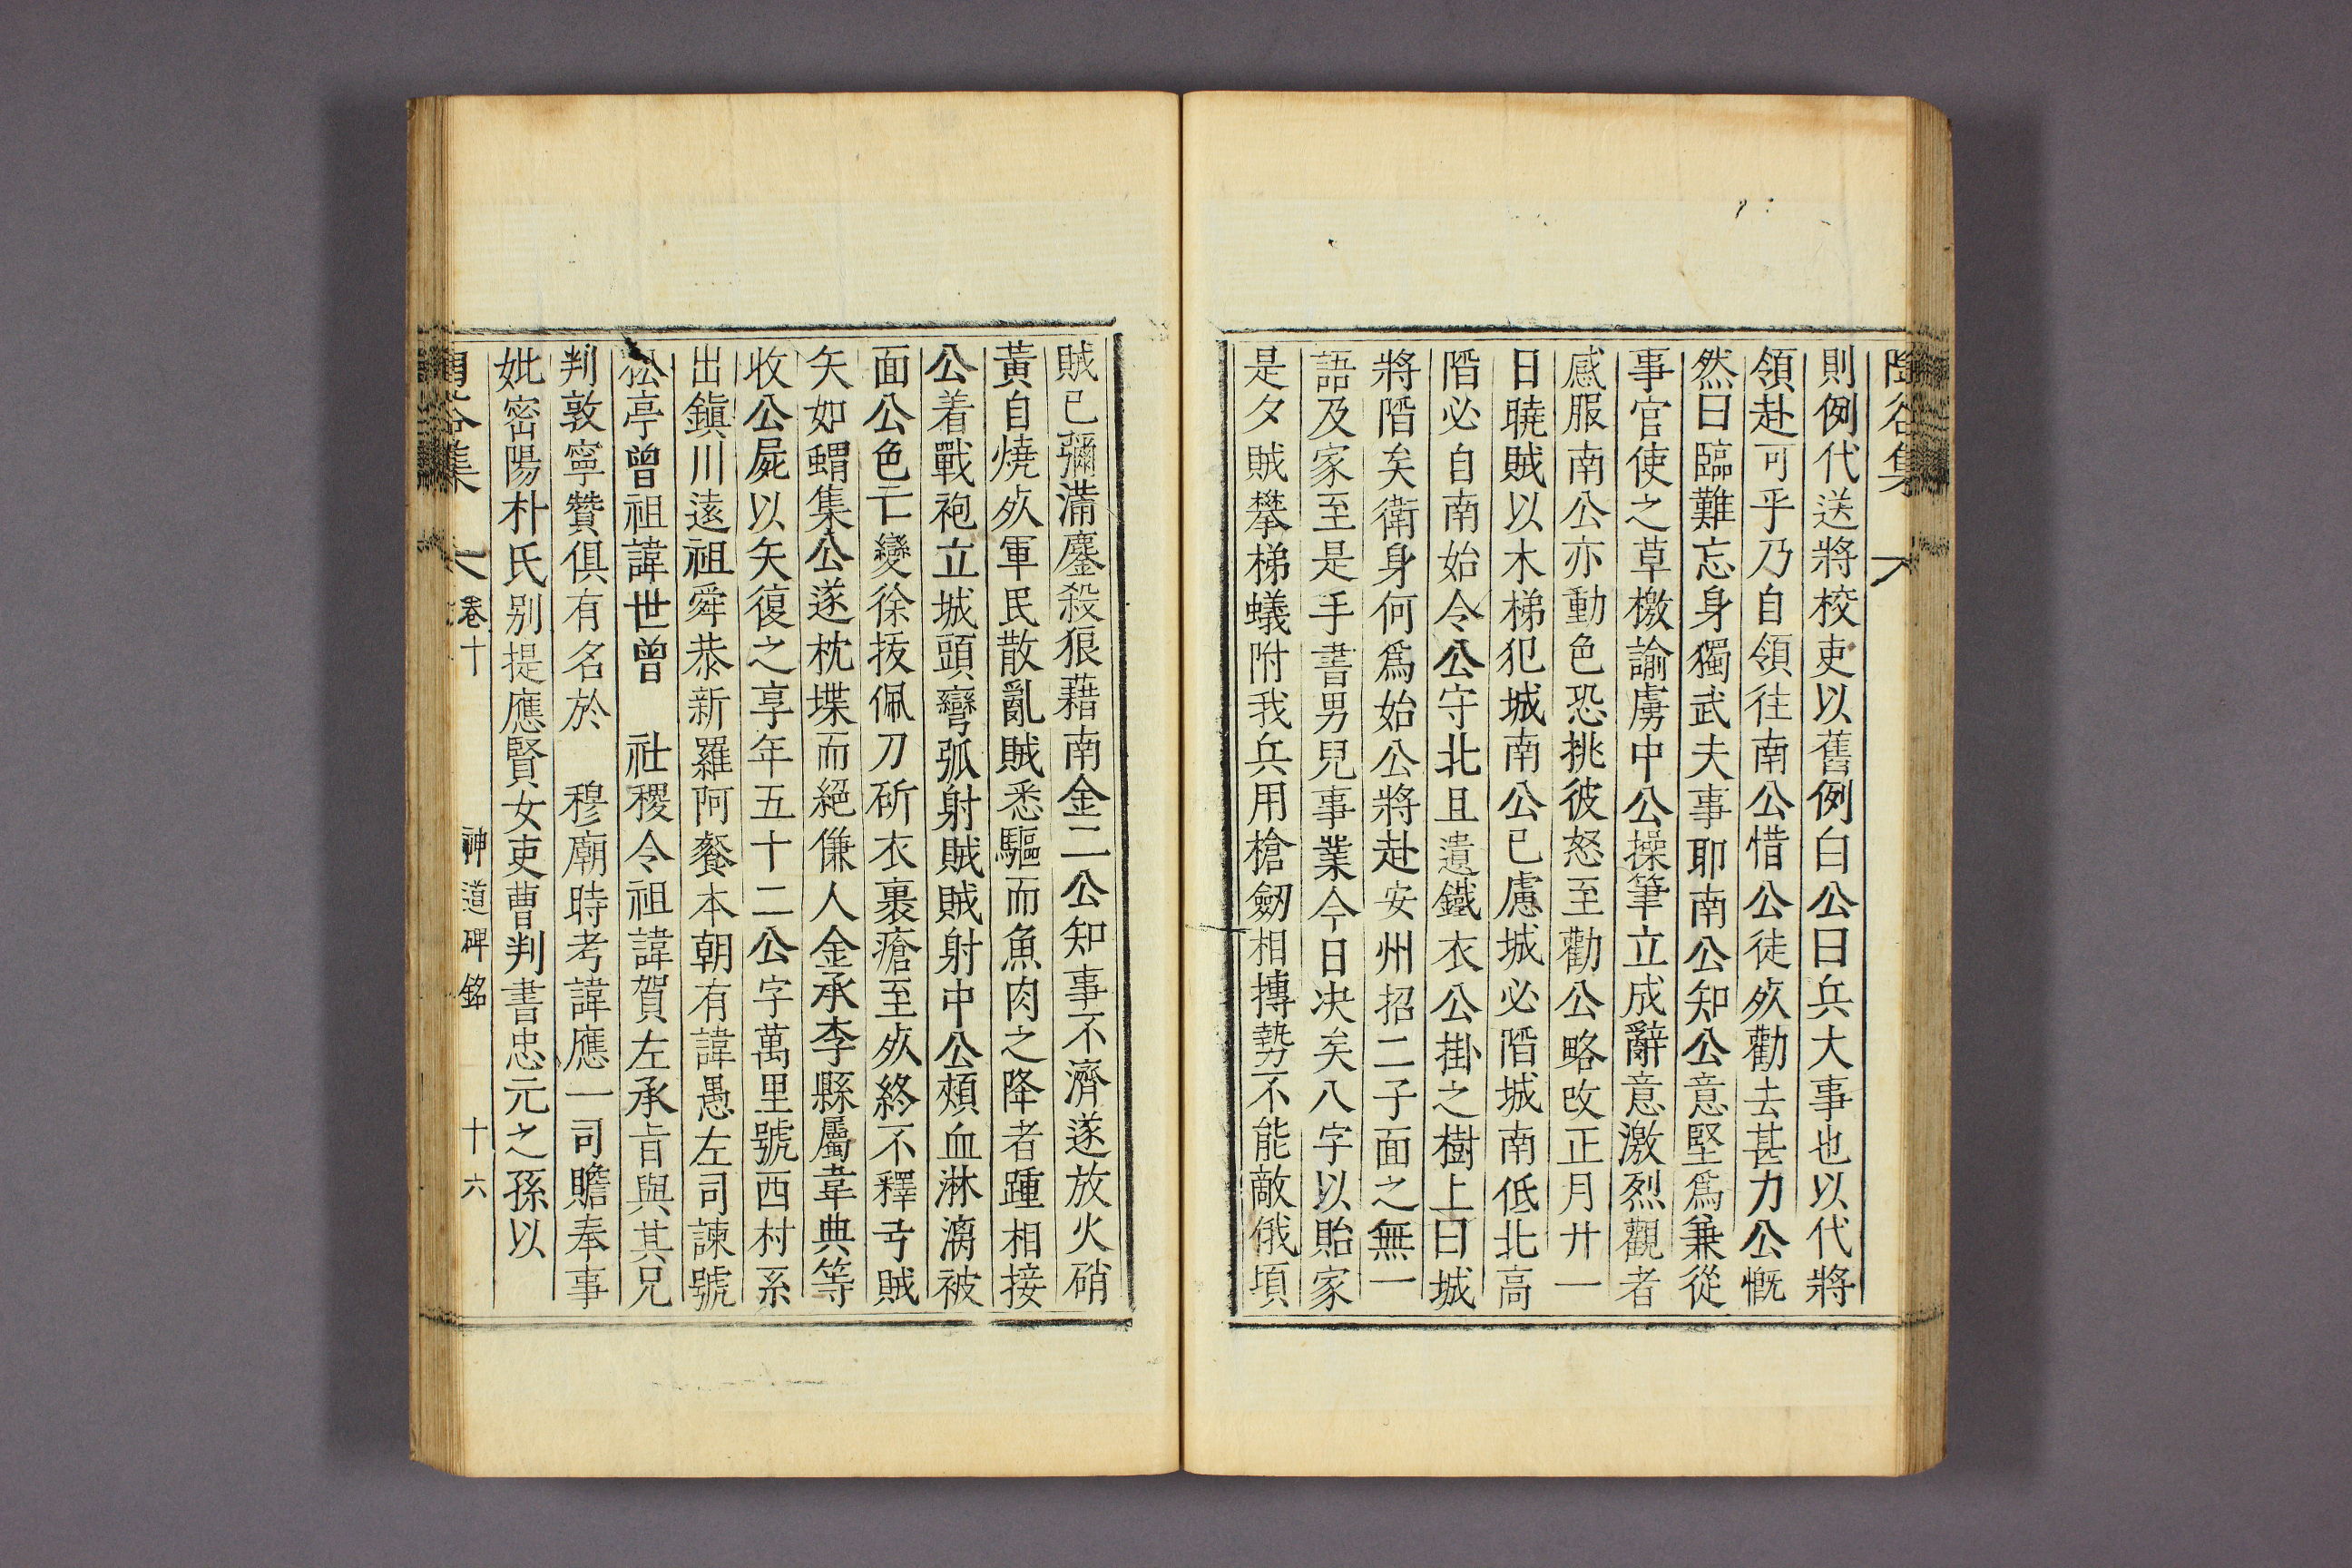 則例代送將校吏以舊例白公曰兵大事也以代將
領赴可乎乃自領往南公惜公徒死勸去甚力公慨
然曰臨難忘身獨武夫事耶南公知公意堅爲兼從
事官使之草檄諭虜中公操筆立成辭意激烈觀者
感服南公亦動色恐挑彼怒至勸公略改正月廿一
日曉賊以木梯犯城南公已慮城必陷城南低北高
陷必自南始令公守北且遺鐵衣公掛之樹上曰城
將陷矣衛身何爲始公將赴安州招二子面之無一
語及家至是手書男兒事業今日决矣八字以貽家
是夕賊攀梯蟻附我兵用槍劒相搏勢不能敵俄頃
賊已彌滿鏖殺狼藉南金二公知事不濟遂放火硝
黃自燒死軍民散亂賊悉驅而魚肉之降者踵相接
公着戰袍立城頭彎弧射賊賊射中公頰血淋漓被
面公色不變徐拔佩刀斫衣裹瘡至死終不釋弓賊
矢如蝟集公遂枕堞而絕傔人金承李縣屬韋典等
收公屍以矢復之享年五十二公字萬里號西村系
出鎭川遠祖舜恭新羅阿餐本朝有諱愚左司諫號
松亭曾祖諱世曾 社稷令祖諱賀左承旨與其兄
判敦寧贊俱有名於 穆廟時考諱應一司贍奉事
妣密陽朴氏別提應賢女吏曹判書忠元之孫以
谷集 卷十 神道碑銘 十六